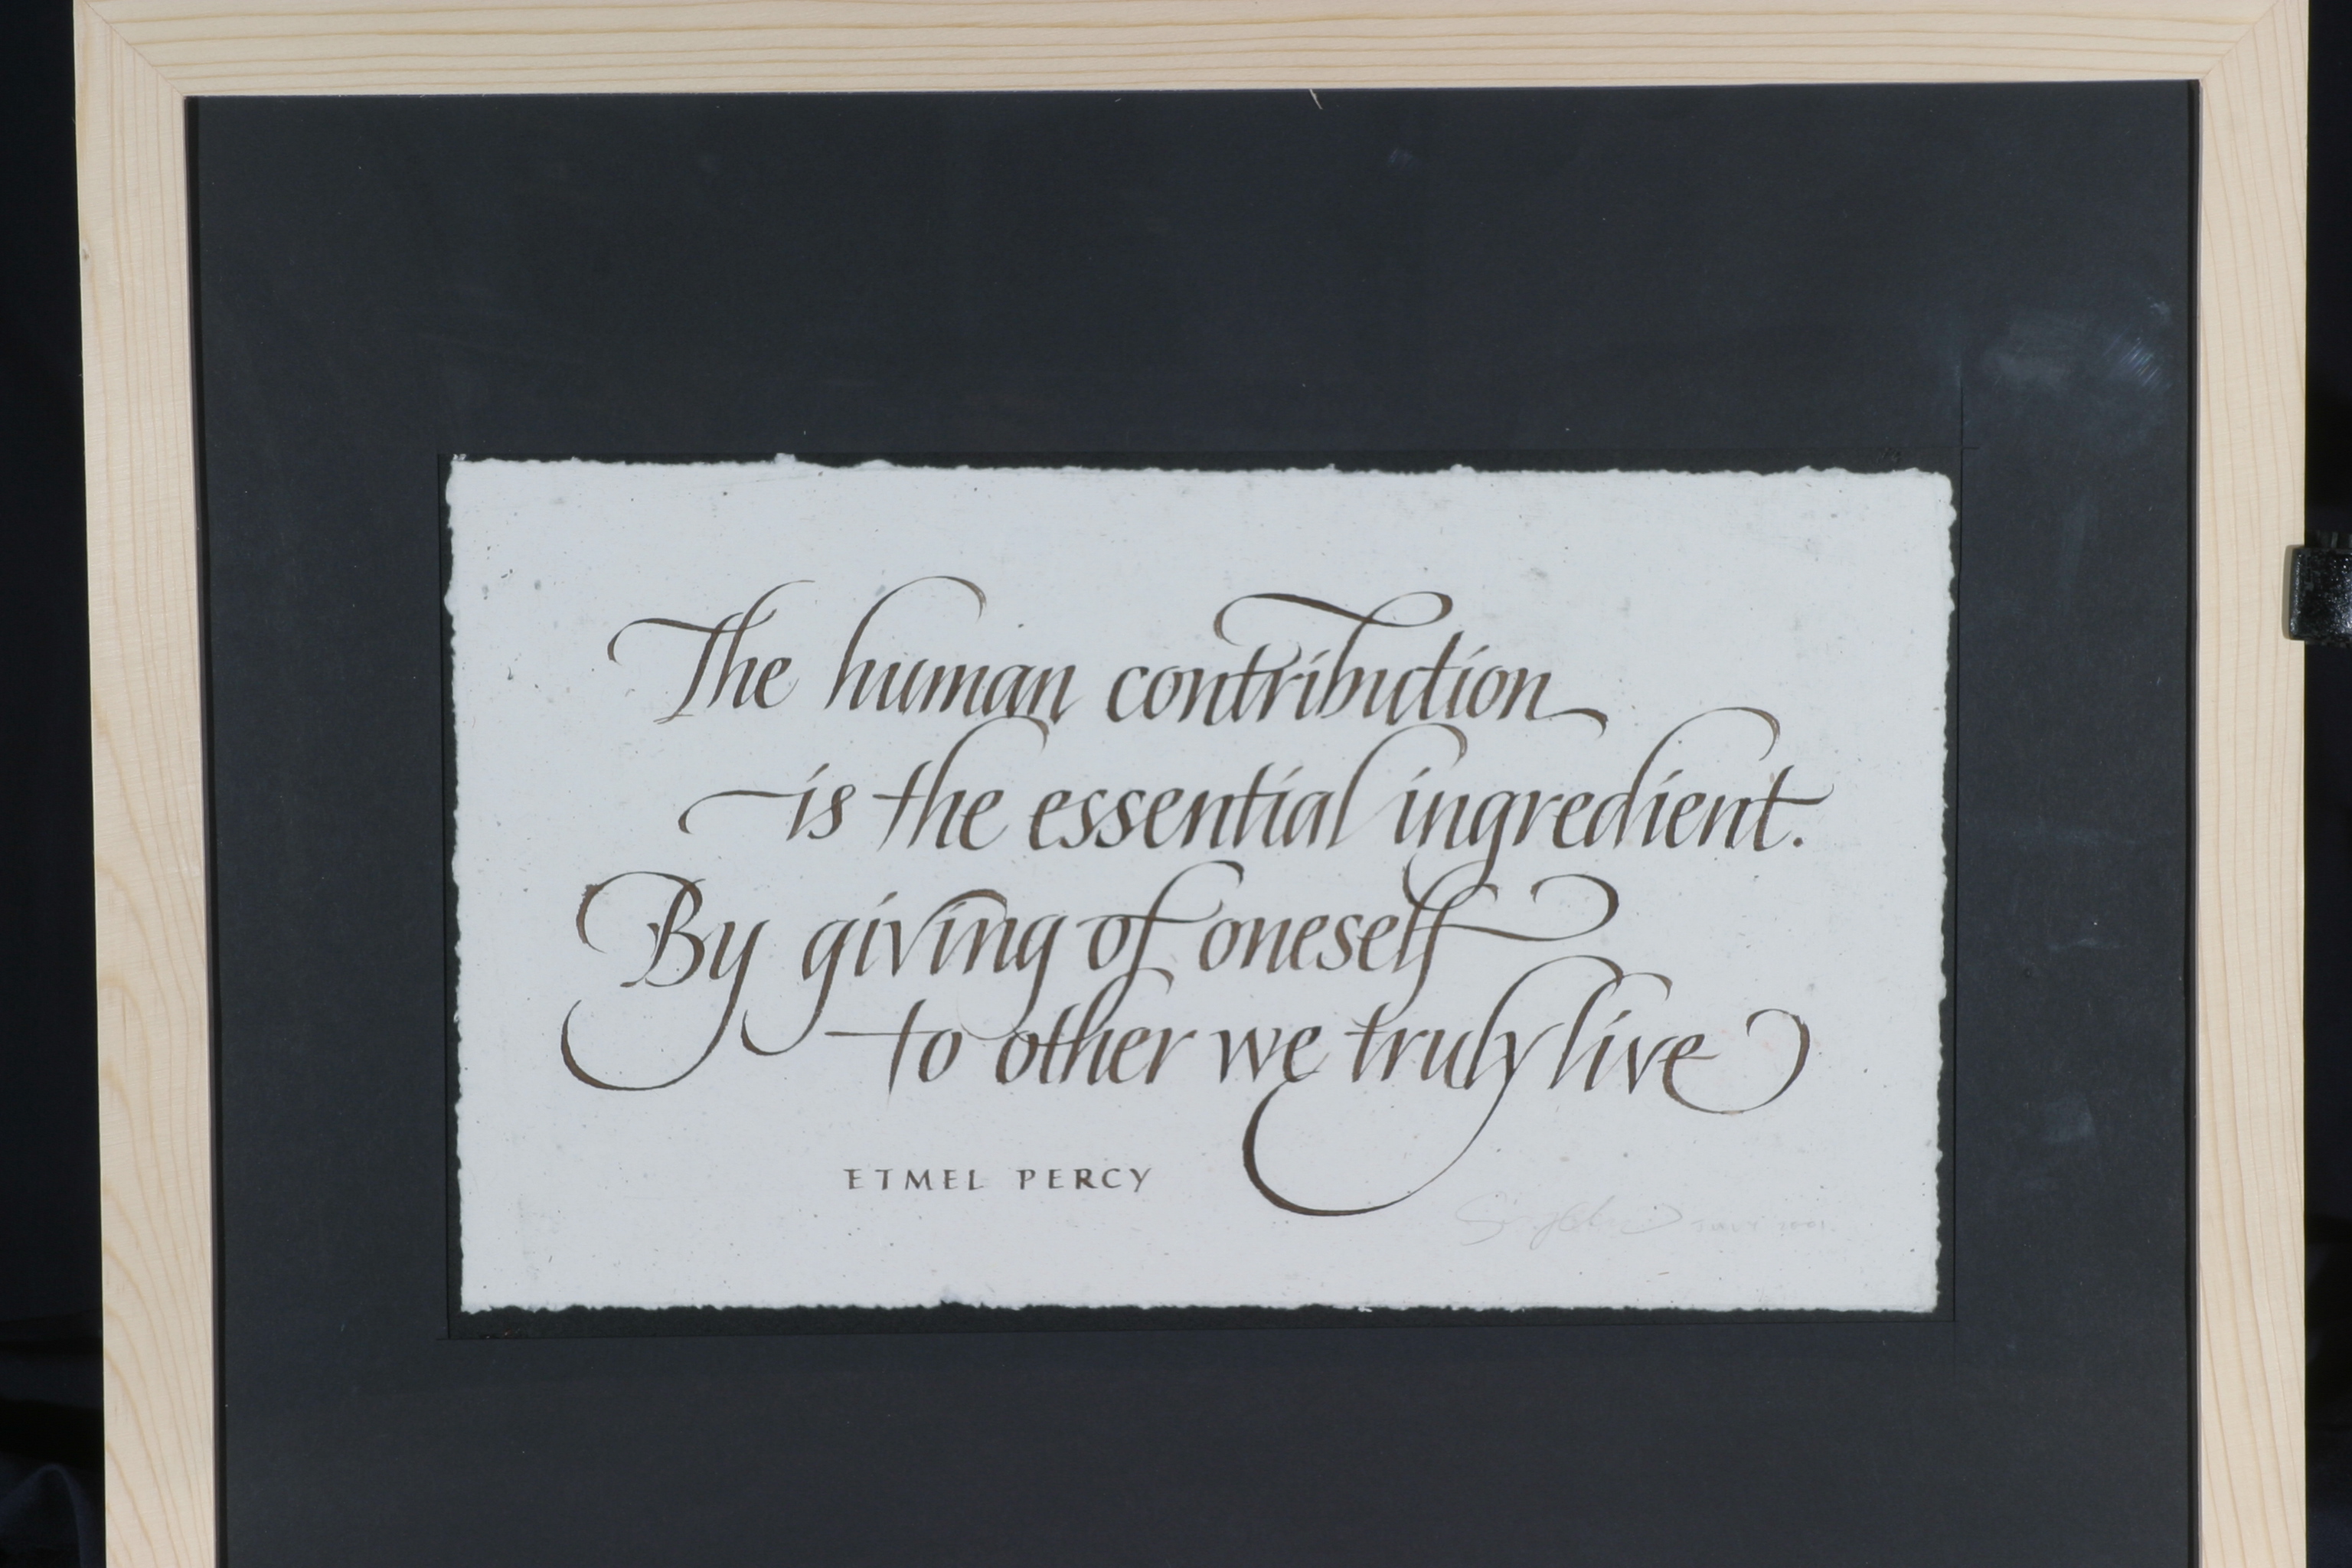 The human contribution
is the essential ingredient.
By giving of oneself
to other we truly live
ETMEL PERCY